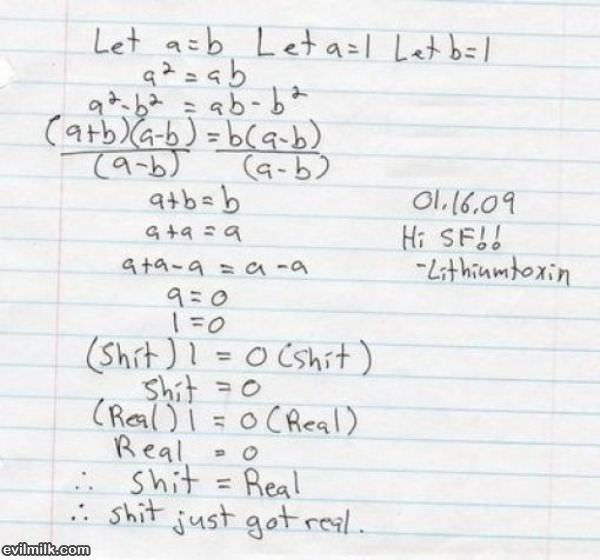 Let a=b Let a=1 Let b=1
a² = ab
a²-b² = ab-b²
(a+b)(a-b) = b(a-b)
(a-b) (a-b)
a+b=b
a+a=a
a+a-a = a-a
a=0
1=0
(Shit)1 = 0(shit)
Shit = 0
(Real)1 = 0(Real)
Real = 0
∴ Shit = Real
∴ shit just got real.
01.16.09
Hi SF!!
-Lithiumtoxin
evilmilk.com